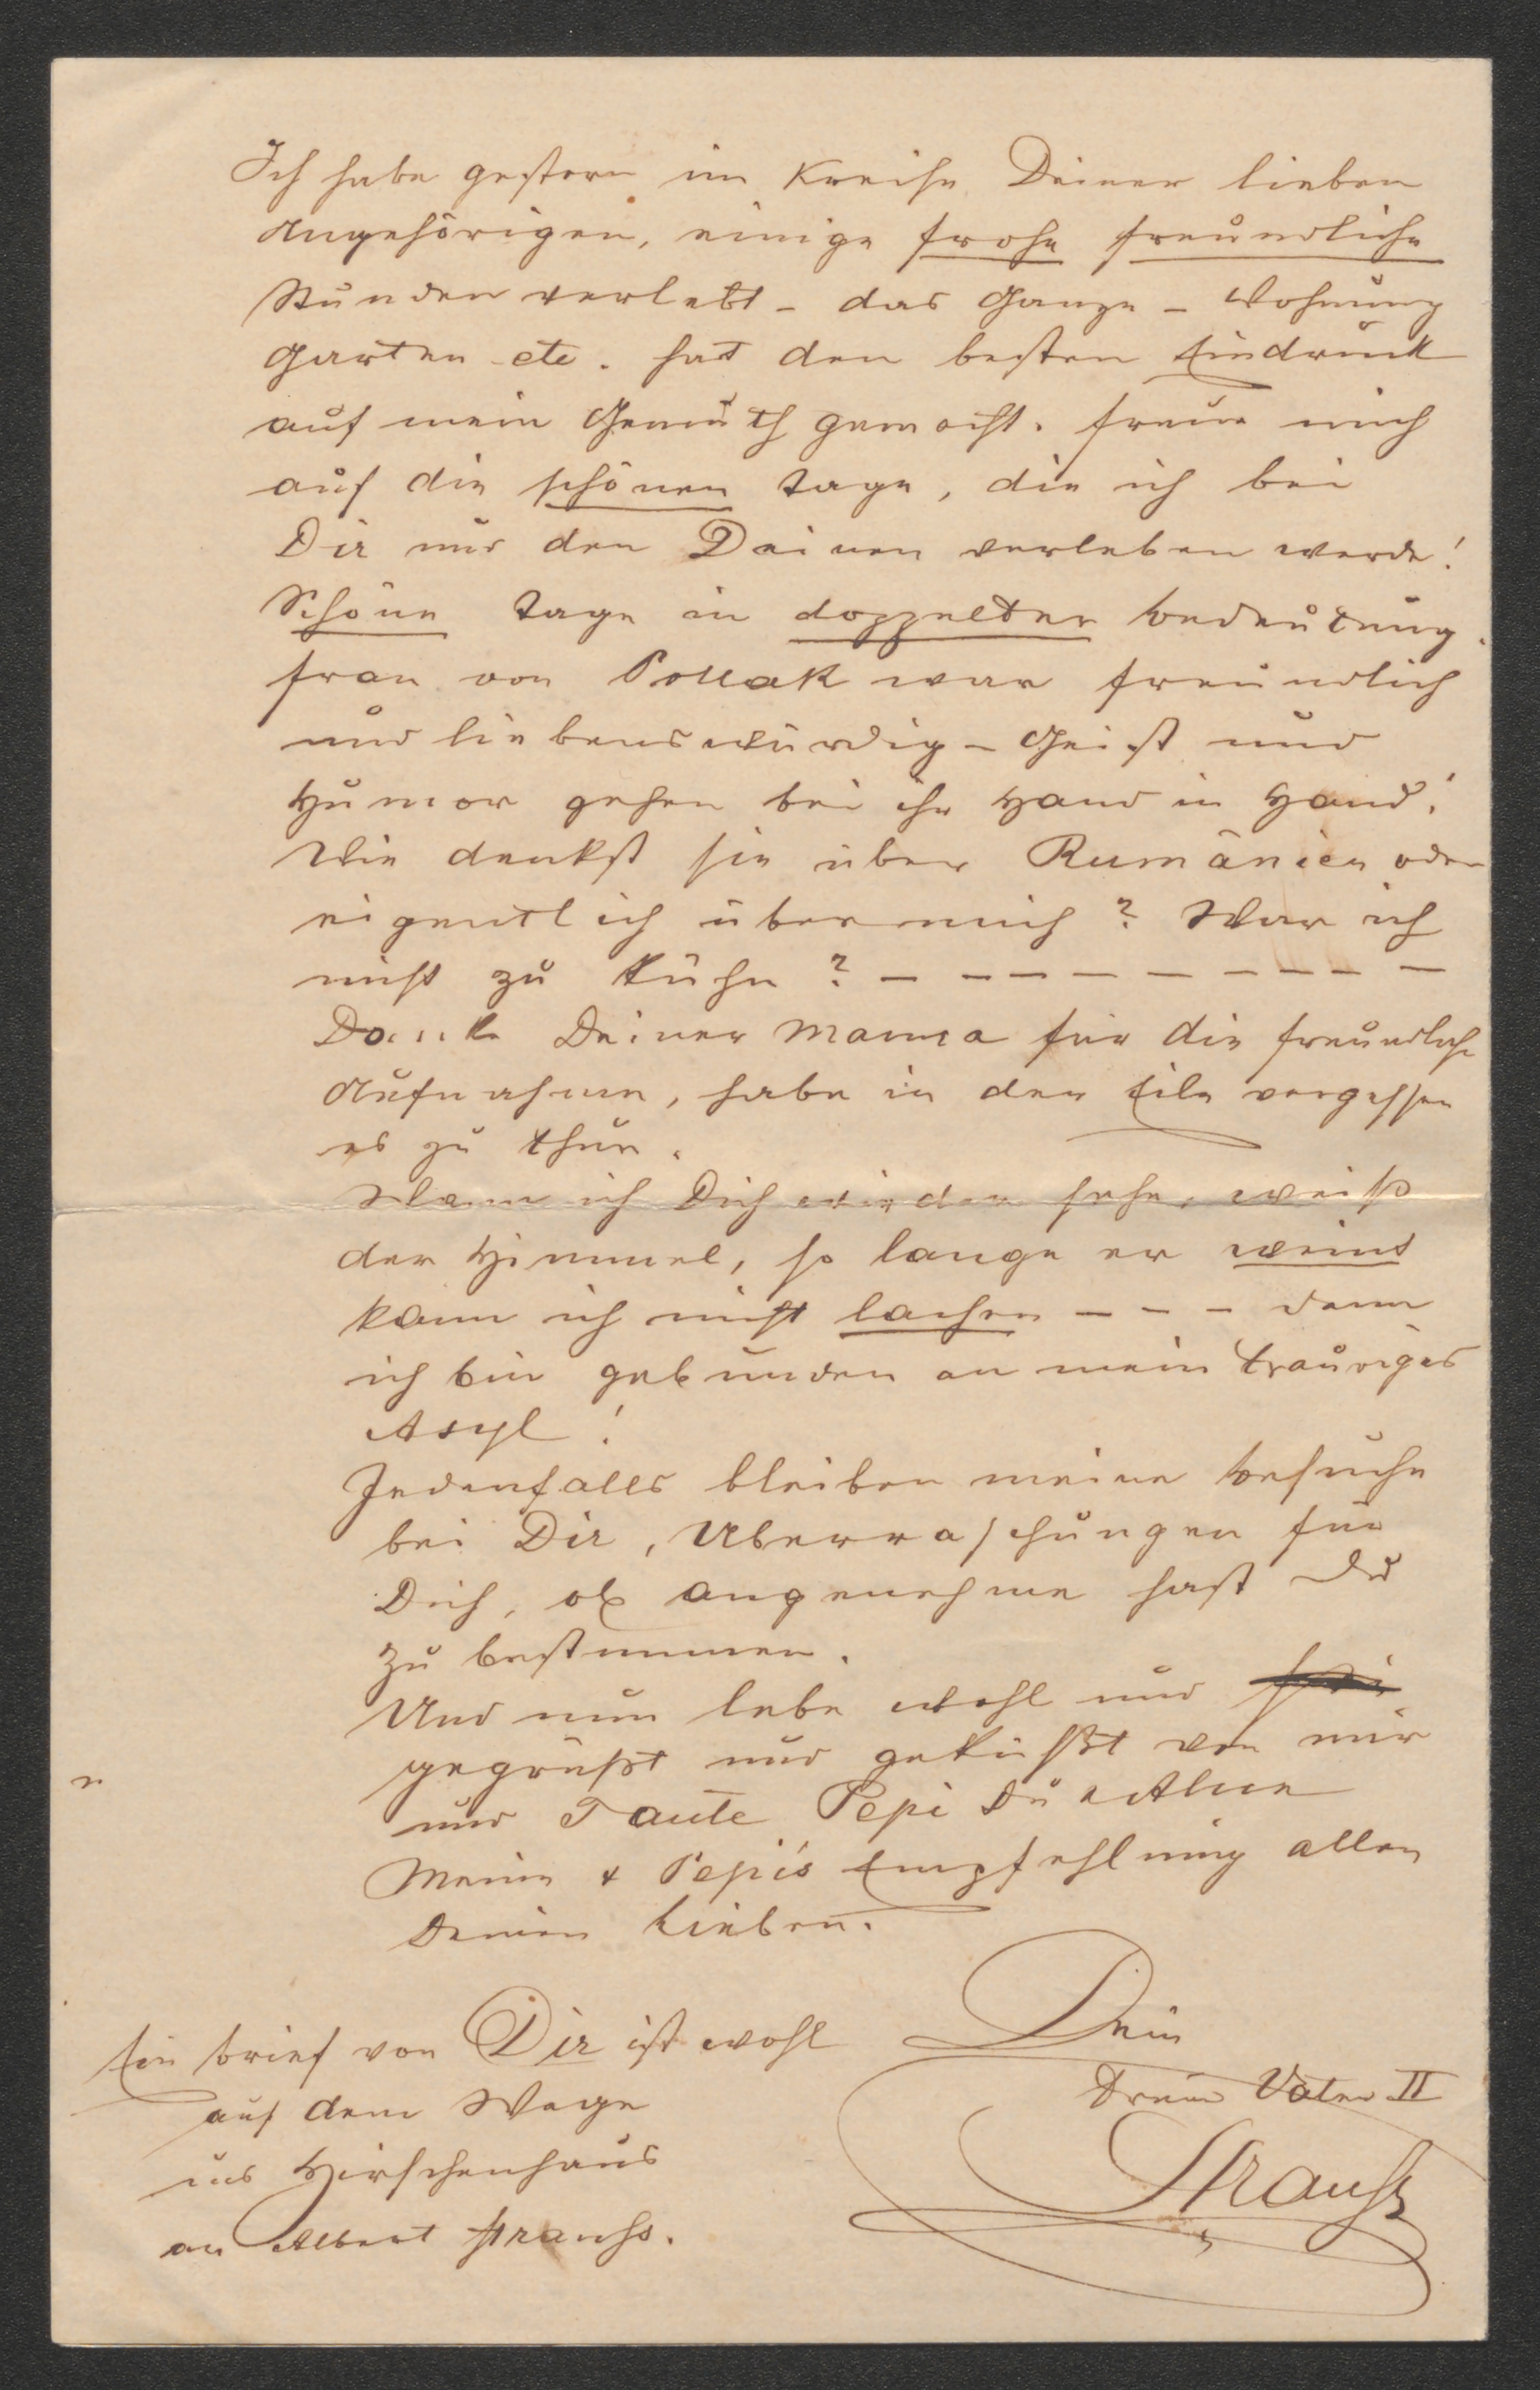 Ich habe gestern im Kreise Deiner lieben
Angehörigen, einige frohe freundliche
Stunden verlebt - das Ganze - Wohnung
Garten etc. hat den besten Eindruck
auf mein Gemüth gemacht. freue mich
auf die schönen Tage, die ich bei
Dir und den Deinen verleben werde!
Schöne Tage in doppelter Bedeutung.
Frau von Pollak war freundlich
und liebenswürdig - Geist und
Humor gehen bei ihr Hand in Hand!
Wie denkst sie über Rumänien oder
eigentlich über mich? War ich
nicht zu kühn? - - - - - - - - -
Danke Deiner Mama für die freundliche
Aufnahme, habe in der Eile vergessen
es zu thun.
Wann ich Dich wieder sehe, weiß
der Himmel, so lange er weint
kann ich nicht lachen - - - denn
ich bin gebunden an mein trauriges
Asyl!
Jedenfalls bleiben meine Besuche
bei Dir, Überraschungen für
Dich, ob angenehme hast Du
zu bestimmen.
Und nun lebe wohl und sei
gegrüßt und geküßt von mir
und Tante Pepi Du
Meine & Pepi's Empfehlung allen
Deinen Lieben.
Dein
treuer Vater II
Strauß
Ein Brief von Dir ist wohl
auf dem Wege
ins Hirschenhaus
an Albert Strauss.